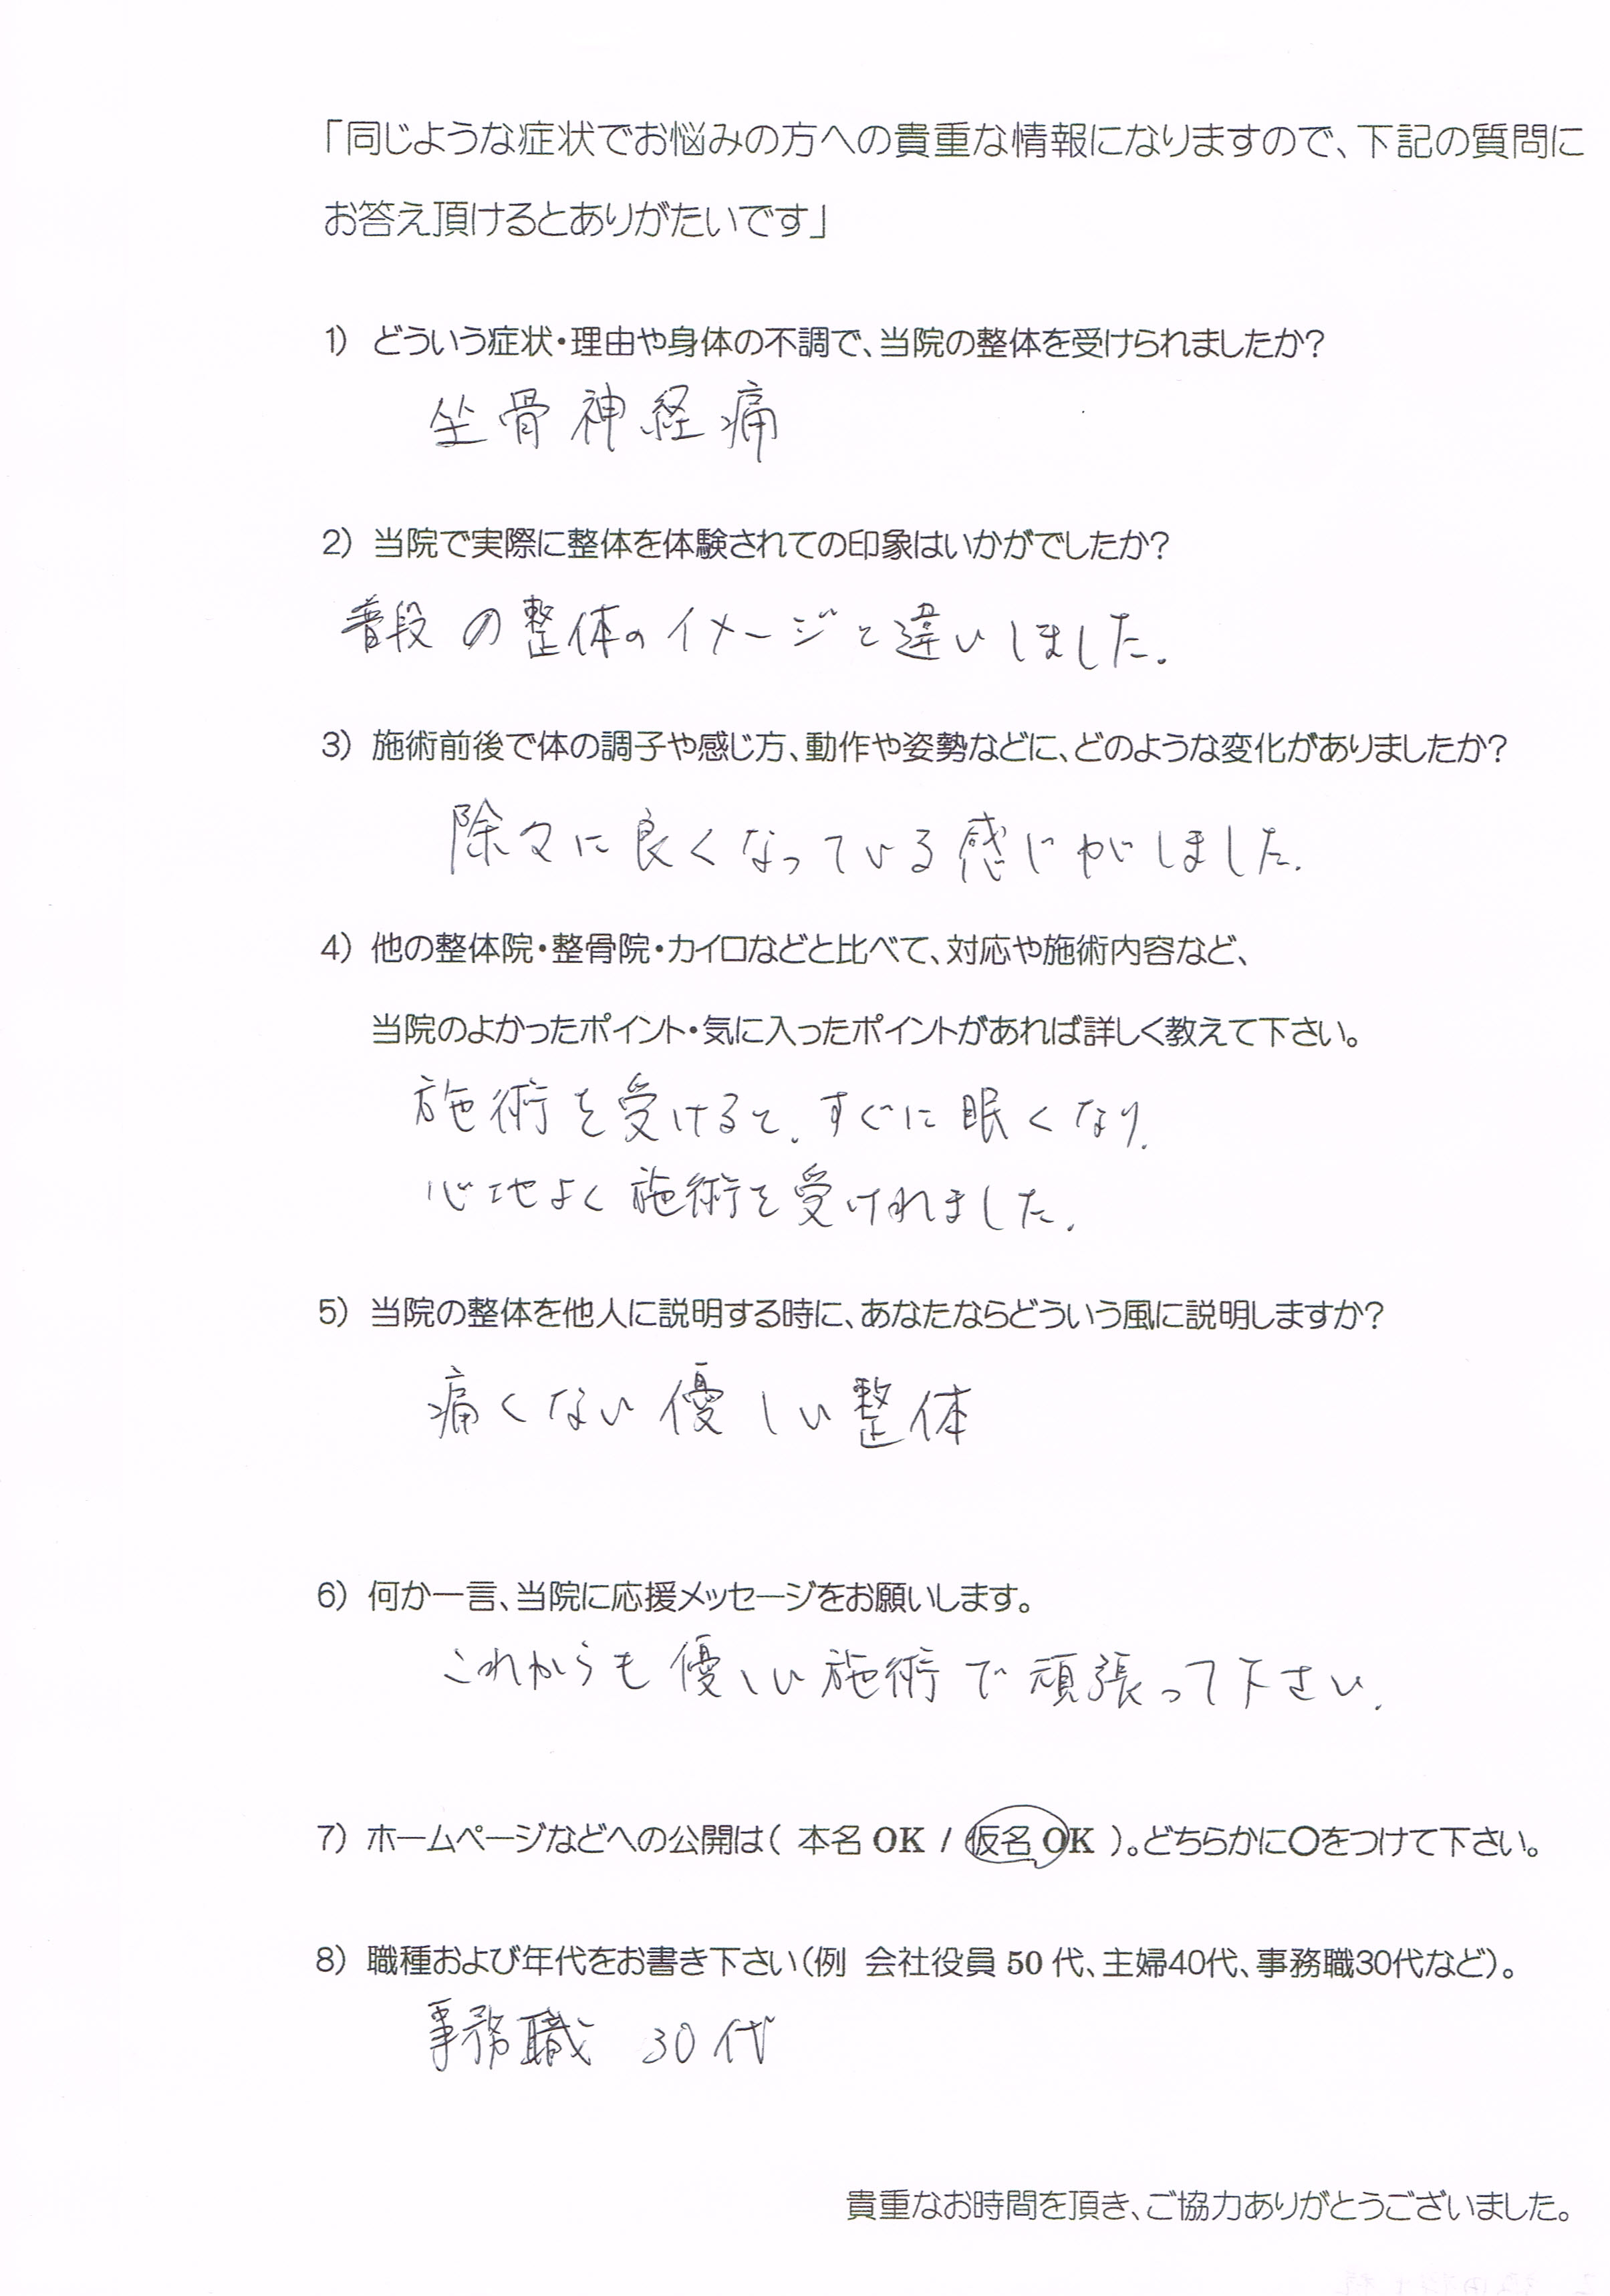 「同じような症状でお悩みの方への貴重な情報になりますので、下記の質問に
お答え頂けるとありがたいです」
1) どういう症状・理由や身体の不調で、当院の整体を受けられましたか?
坐骨神経痛
2) 当院で実際に整体を体験されての印象はいかがでしたか?
普段の整体のイメージと違いしました。
3) 施術前後で体の調子や感じ方、動作や姿勢などに、どのような変化がありましたか?
除々に良くなっている感じがしました。
4) 他の整体院・整骨院・カイロなどと比べて、対応や施術内容など、
当院のよかったポイント・気に入ったポイントがあれば詳しく教えて下さい。
施術を受けると、すぐに眠くなり、
心地よく施術を受けれました。
5) 当院の整体を他人に説明する時に、あなたならどういう風に説明しますか?
痛くない優しい整体
6) 何か一言、当院に応援メッセージをお願いします。
これからも優しい施術で頑張って下さい。
7) ホームページなどへの公開は( 本名 OK / 仮名 OK )。どちらかに〇をつけて下さい。
8) 職種および年代をお書き下さい(例 会社役員 50 代、主婦40代、事務職30代など)。
事務職 30代
貴重なお時間を頂き、ご協力ありがとうございました。